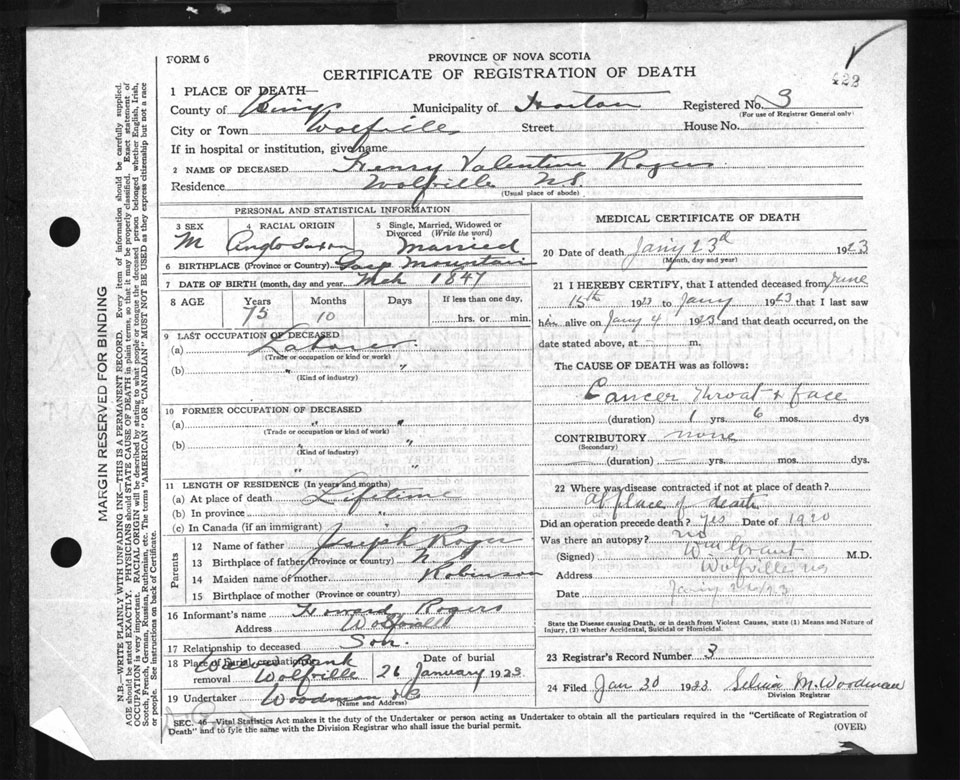 FORM 6
PROVINCE OF NOVA SCOTIA
CERTIFICATE OF REGISTRATION OF DEATH
423
1 PLACE OF DEATH—
County of Kings Municipality of Horton Registered No. 3
(For use of Registrar General only)
City or Town Wolfville Street House No.
If in hospital or institution, give name
2 NAME OF DECEASED Henry Valentine Rogers
Residence Wolfville N.S.
(Usual place of abode)
PERSONAL AND STATISTICAL INFORMATION
3 SEX 4 RACIAL ORIGIN 5 Single, Married, Widowed or Divorced (Write the word)
M Anglo Saxon Married
6 BIRTHPLACE (Province or Country) Gasp Mountain
7 DATE OF BIRTH (month, day and year) Mch 1847
8 AGE Years Months Days If less than one day,
75 10 hrs. or min.
9 LAST OCCUPATION OF DECEASED
(a) Laborer.
(Trade or occupation or kind of work)
(b) " "
(Kind of industry)
10 FORMER OCCUPATION OF DECEASED
(a) " "
(Trade or occupation or kind of work)
(b) " "
(Kind of industry)
" "
11 LENGTH OF RESIDENCE (In years and months)
(a) At place of death Lifetime
(b) In province "
(c) In Canada (if an immigrant)
Parents
12 Name of father Joseph Roger
13 Birthplace of father (Province or country) N
14 Maiden name of mother Robinson
15 Birthplace of mother (Province or Country)
16 Informant's name Howard Rogers
Address Wolfville
17 Relationship to deceased Son.
18 Place of burial, cremation or removal Willow Bank Wolfville
Date of burial
26 January 1923
19 Undertaker Woodman
(Name and Address)
MEDICAL CERTIFICATE OF DEATH
20 Date of death Jany 23rd 1923
(Month, day and year)
21 I HEREBY CERTIFY, that I attended deceased from June
15th 1923 to Jany 1923 that I last saw
him alive on Jany 4 1923 and that death occurred, on the
date stated above, at — m.
The CAUSE OF DEATH was as follows:
Cancer Throat & face
(duration) 1 yrs. 6 mos. dys
CONTRIBUTORY none
(Secondary)
— (duration) — yrs. mos. dys.
22 Where was disease contracted if not at place of death?
At place of death
Did an operation precede death? Yes Date of 1920
Was there an autopsy? no
(Signed) Wm Grant M.D.
Address Wolfville NS
Date Jany 24/23
State the Disease causing Death, or in death from Violent Causes, state (1) Means and Nature of
Injury, (2) whether Accidental, Suicidal or Homicidal.
23 Registrar's Record Number 3
24 Filed Jan 30 1923 Selina M. Woodman
Division Registrar
SEC. 46—Vital Statistics Act makes it the duty of the Undertaker or person acting as Undertaker to obtain all the particulars required in the "Certificate of Registration of
Death" and to fyle the same with the Division Registrar who shall issue the burial permit.
(OVER)
MARGIN RESERVED FOR BINDING
N.B.—WRITE PLAINLY WITH UNFADING INK—THIS IS A PERMANENT RECORD. Every item of information should be carefully supplied.
AGE should be stated EXACTLY. PHYSICIANS should STATE CAUSE OF DEATH in plain terms, so that it may be properly classified. Exact statement of
OCCUPATION is very important. RACIAL ORIGIN will be described by stating to what people or tongue the deceased person belonged whether English, Irish,
Scotch, French, German, Russian, Ruthenian, etc. The terms "AMERICAN" OR "CANADIAN" MUST NOT BE USED as they express citizenship but not a race
or people. See instructions on back of Certificate.